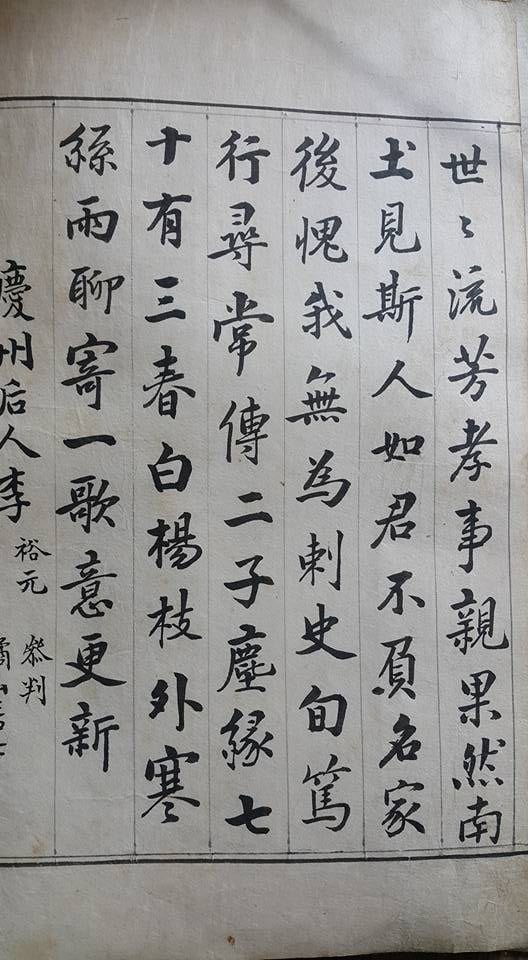 世〻流芳孝事親果然南
土見斯人如君不負名家
後愧我無為刺史旬篤
行尋常傳二子塵緣七
十有三春白楊枝外寒
絲雨聊寄一歌意更新
慶州后人李裕元叅判